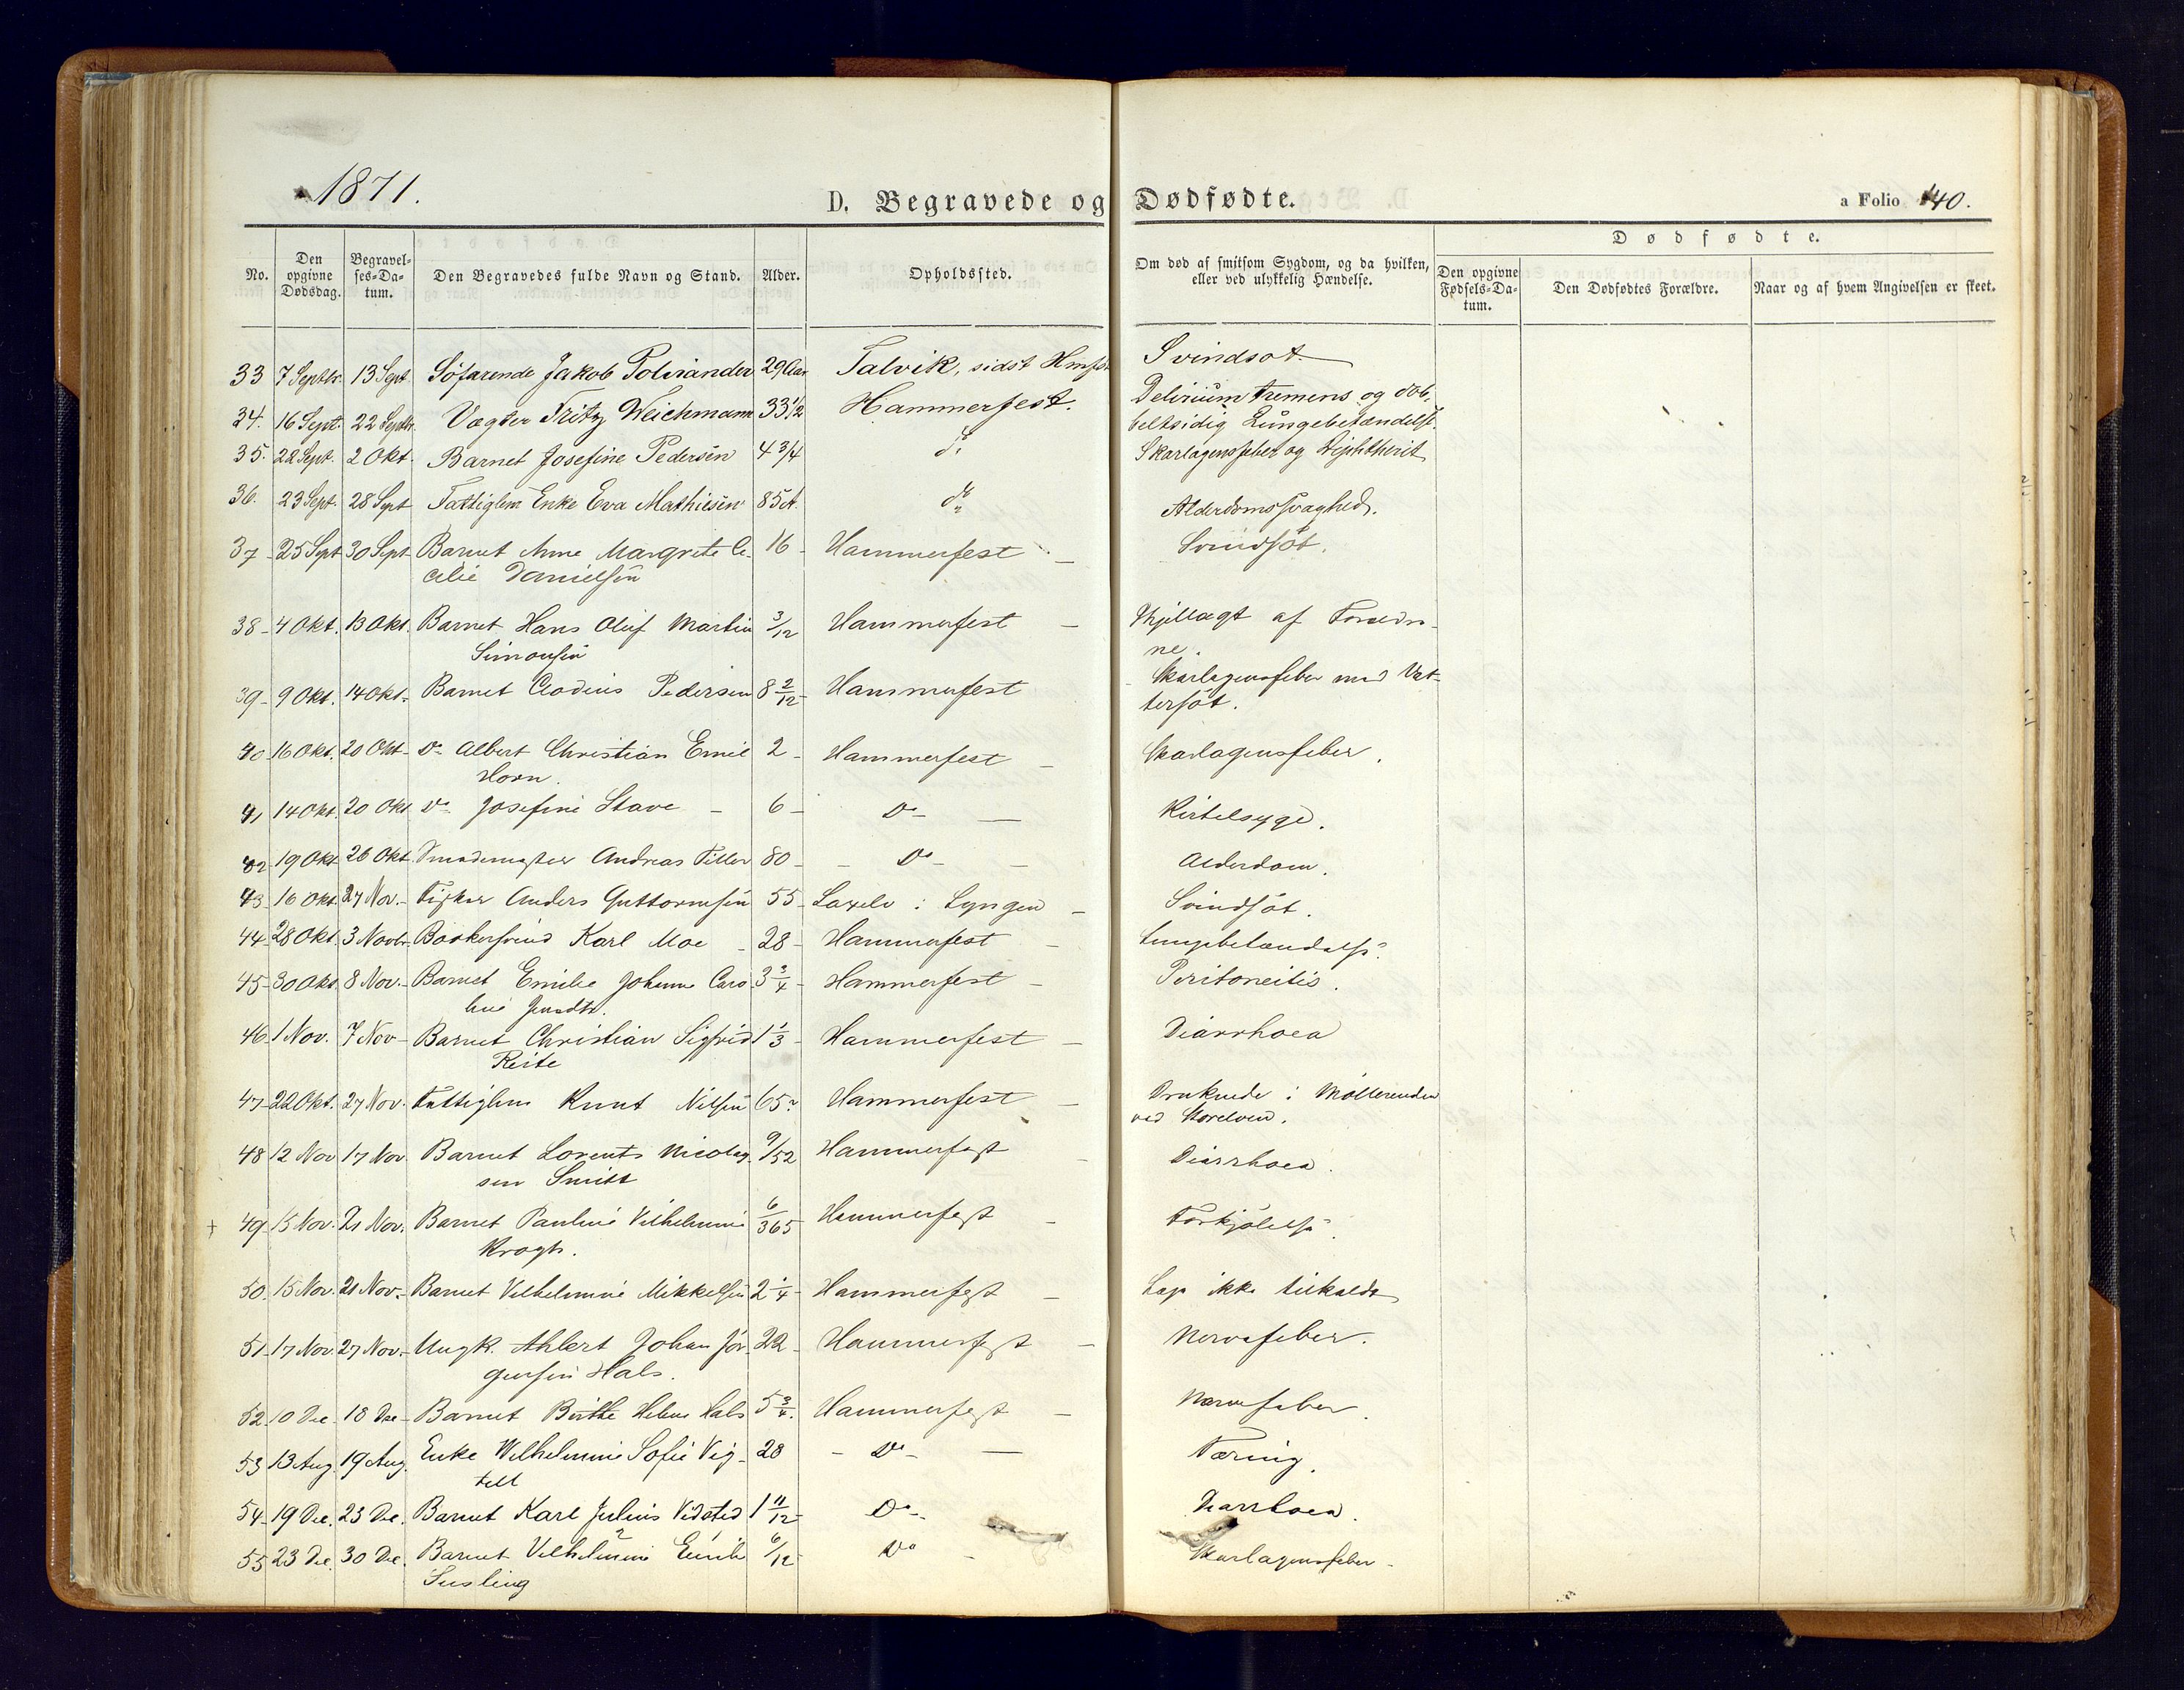 1871.
D. Begravede og Dødfødte.
a Folio 140.
No.
Den opgivne Dødsdag.
Begravel-ses-Da-tum.
Den Begravedes fulde Navn og Stand.
Alder.
Opholdssted.
Om død af smitsom Sygdom, og da hvilken, eller ved ulykkelig Hændelse.
Dødfødte.
Den opgivne Fødsels-Da-tum.
Den Dødfødtes Forældre.
Naar og af hvem Angivelsen er skeet.
33 7 Septbr. 13 Sept. Söfarende Jakob Polviander 29 Aar Talvik, sidst Hmfst Svindsot
34. 16 Sept. 22 Septbr. Vægter Fritz Weichmann 33 1/2 Hammerfest. Delirium tremens og dob-
beltsidig Lungebetændelse.
35. 22 Sept. 2 Okt. Barnet Josefine Pedersen 4 3/4 do Skarlagensfeber og Diphtherit
36. 23 Sept. 28 Sept Fattiglem Enke Eva Mathiesen 85 A. do Alderdomssvaghed.
37 - 25 Sept 30 Sept Barnet Anne Margrete Ce- 16 - Hammerfest - Svindsot.
cilie Danielsen
38 - 4 Okt. 13 Okt. Barnet Hans Oluf Martin 3/12 Hammerfest - Ihjellagt af Forældre-
Simonsen
ne.
39 - 9 Okt. 14 Okt. - Barnet Clodius Pedersen 8 2/12 - Hammerfest Skarlagensfeber med Vat-
tersot.
40 - 16 Okt. 20 Okt - Do Albert Christian Emil 2 - Hammerfest - Skarlagensfeber.
Horn.
41 14 Okt. 20 Okt Do Josefine Stave - 6 - Do - Kirtelsyge.
42 - 19 Okt. 26 Okt. Smedemester Andreas Tiller 80 - - Do - Alderdom.
43 - 16 Okt. 27 Nov. - Fisker Anders Guttormsen 55 - Laxelv i Lyngen - Svindsot.
44 - 28 Okt. 3 Novbr. Bødkersvend Karl Moe - 28 - Hammerfest - Lungebetændelse.
45 - 30 Okt. 8 Nov. - Barnet Emilie Johanne Caro 3 3/4 - Hammerfest - Peritoneitis.
line
46 1 Nov. 7 Nov - Barnet Christian Sigfrid 1 1/3 - Hammerfest - Diarrhoea
Reite
47 - 22 Okt. 27 Nov. Fattiglem Knut Nilsen 65? Hammerfest - Druknede i Møllerenden
ved Storelven.
48 12 Nov 17 Nov. Barnet Lorents Nicolay- 9/52 Hammerfest - Diarrhoea.
sen Smitt
+ 49 15 Nov. 21 Nov. Barnet Pauline Vilhelmine 6/365 Hammerfest - Forkjölelse.
Krogh.
50. 15 Nov. 21 Nov. - Barnet Vilhelmine Mikkelsen 2 1/4 - Hammerfest - Læge ikke tilkaldt
51 - 17 Nov. 27 Nov. - Ungk. Ahlert Johan Jör- 22 - Hammerfest - Nervefeber.
gensen Hals.
52 - 10 Dec. 18 Dec - Barnet Birthe Helene Hals 5 3/4. Hammerfest - Nervefeber.
53 13 Aug. 19 Aug. Enke Wilhelmine Sofie Vig- 28 - Do - Tæring.
tell
54 - 19 Dec. 23 Dec. Barnet Karl Julius Vidsted 1 11/12 - Do - Diarrhoea.
55 23 Dec. 30 Dec. Barnet Vilhelmine Emilie 6/12 Do - Skarlagensfeber -
Susling